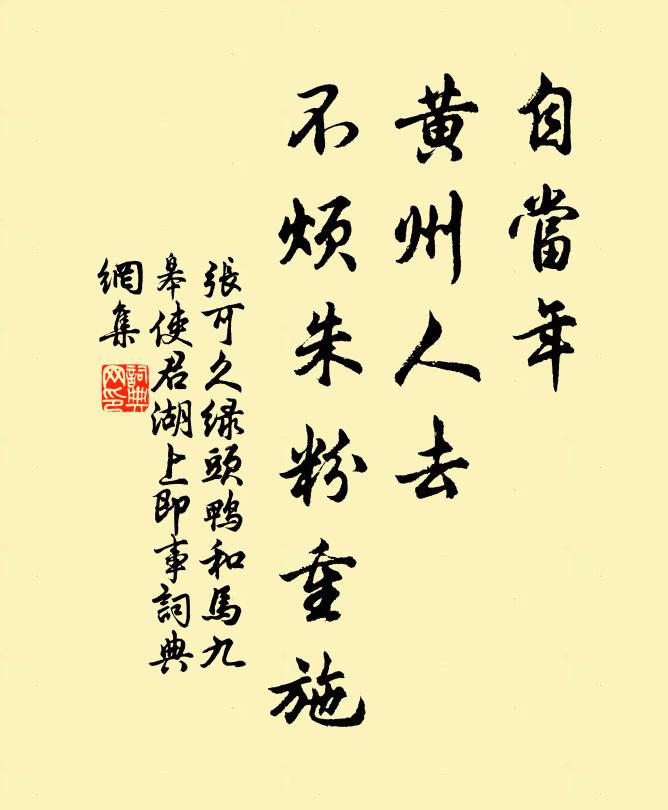 自當年
黄州人去
不烦朱粉重施
張可久緑頭鴨和馬九
皋使君湖上即事詞典
網集
詞典
网印